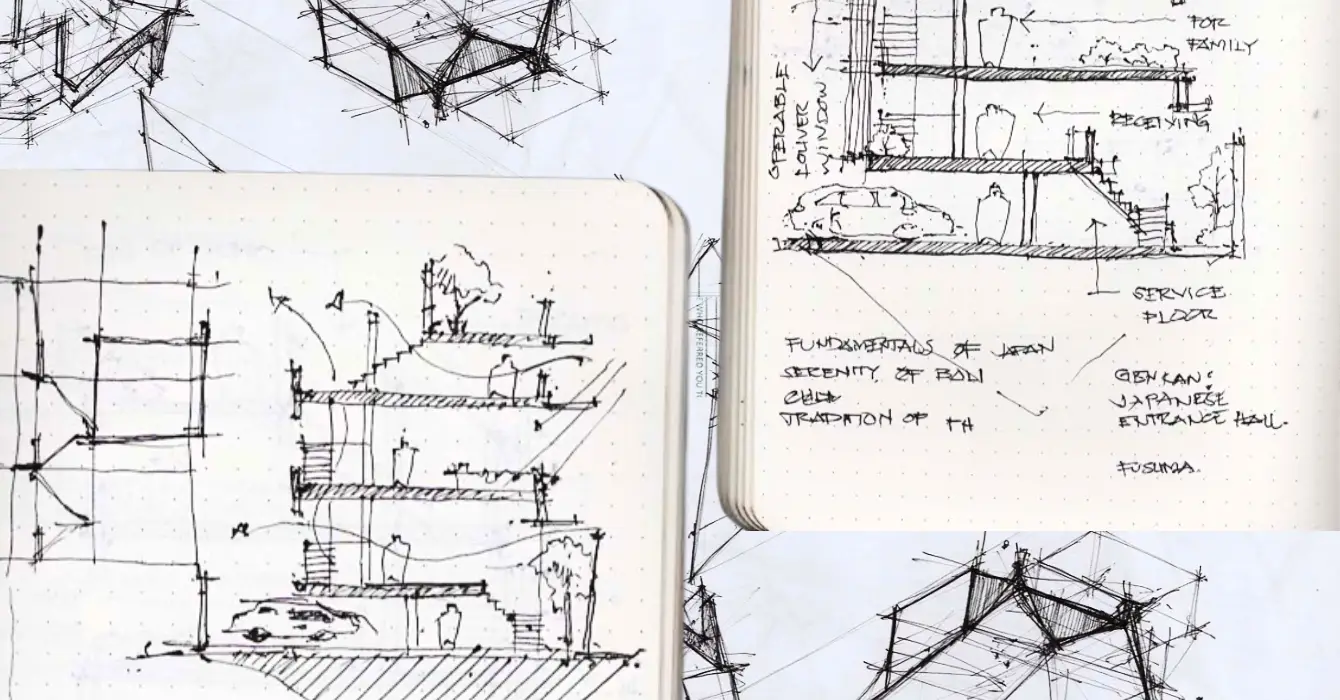 FOR
FAMILY
OPERABLE
LOUVER
WINDOW
RECEIVING
SERVICE
FLOOR
FUNDAMENTALS OF JAPAN
SERENITY OF BALI
TRADITION OF PH
GENKAN:
JAPANESE
ENTRANCE HALL.
FUSUMA.